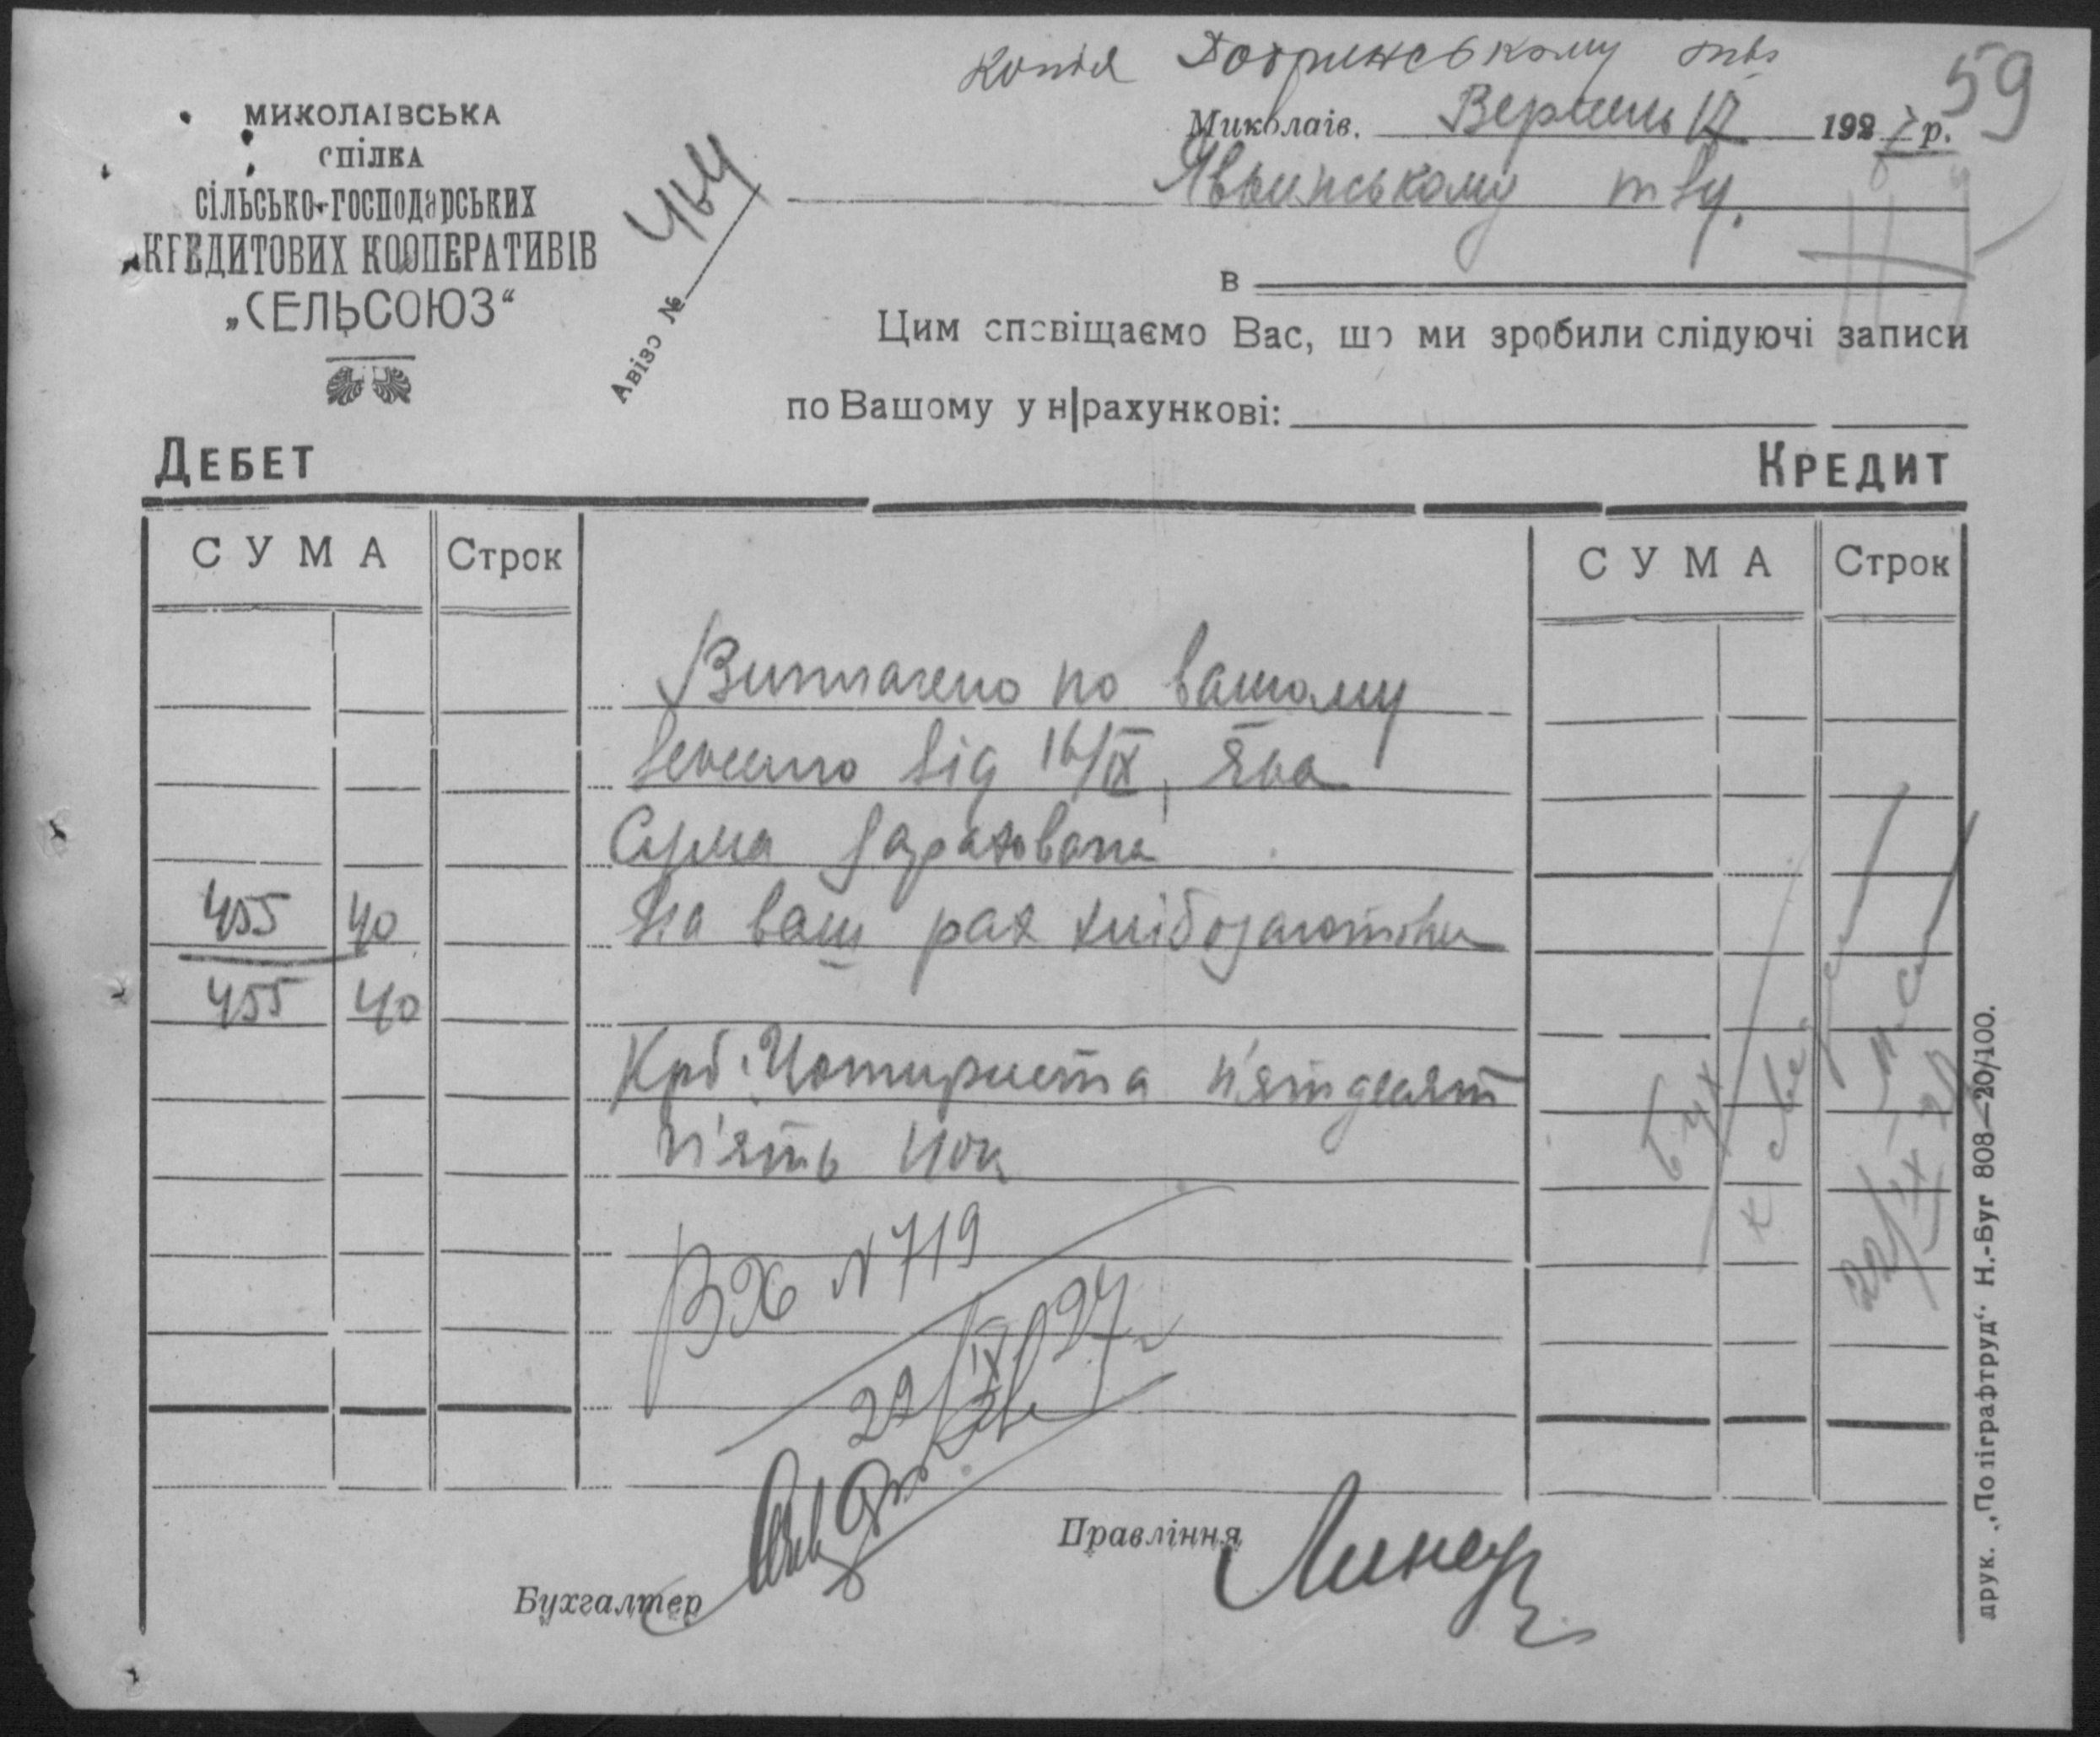 копія Добринському тву
59
МИКОЛАІВСЬКА
СПІЛКА
СІЛЬСЬКО-ГОСПОДАРСЬКИХ
КРЕДИТОВИХ КООПЕРАТИВІВ
„СЕЛЬСОЮЗ“
Авізо № 464
Миколаів. Вересень 17 1927 р.
Явкинському тву.
в
Цим сповіщаємо Вас, що ми зробили слідуючі записи
по Вашому у н|рахункові:
ДЕБЕТ
КРЕДИТ
СУМА Строк СУМА Строк
Виплачено по вашому
від 16/IX, яка
Сума зарахована
455 40 На ваш рах хлібозаготівки
455 40
Крб. Чотириста п'ятдесят
п'ять 40к
ВХ N 719
22/IX 27
Бух
22/IX 27
Правління
Бухгалтер
друк. „Поліграфтруд“ Н.-Буг 808—20/100.